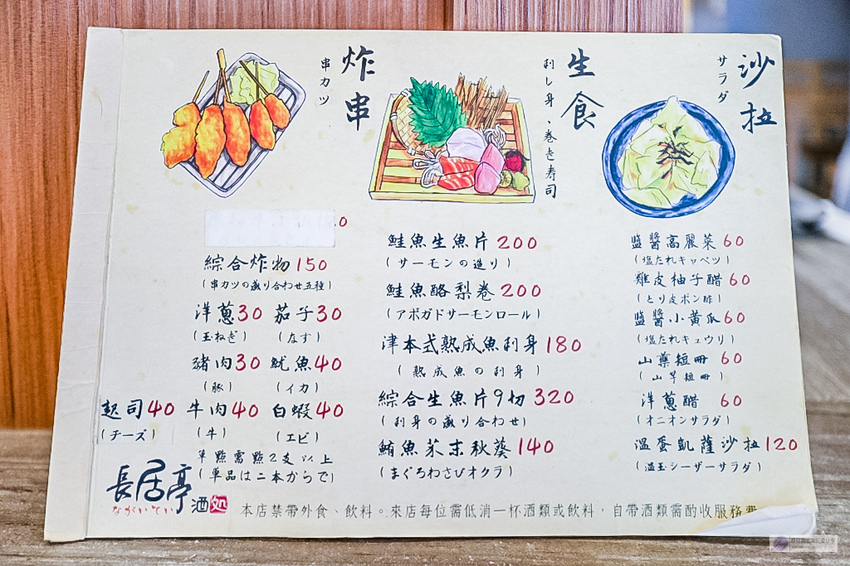 炸串
串カツ
0
綜合炸物150
(串カツの盛り合わせ五種)
洋蔥30 茄子30
(玉ねぎ) (なす)
豬肉30 魷魚40
(豚) (イカ)
起司40 牛肉40 白蝦40
(チーズ) (牛) (エビ)
單點需點2支以上
(単品は二本からで)
生食
刺し身、巻き寿司
鮭魚生魚片200
(サーモンの造り)
鮭魚酪梨卷200
(アボガドサーモンロール)
津本式熟成魚刺身180
(熟成魚の刺身)
綜合生魚片9切320
(刺身の盛り合わせ)
鮪魚芥末秋葵140
(まぐろわさびオクラ)
沙拉
サラダ
鹽醬高麗菜60
(塩たれキャベツ)
雞皮柚子醋60
(とり皮ポン酢)
鹽醬小黃瓜60
(塩たれキュウリ)
山藥短冊60
(山芋短冊)
洋蔥醋60
(オニオンサラダ)
溫蛋凱薩沙拉120
(温玉シーザーサラダ)
長居亭
ながいてい
酒処
本店禁帶外食、飲料。來店每位需低消一杯酒類或飲料，自帶酒類需酌收服務費